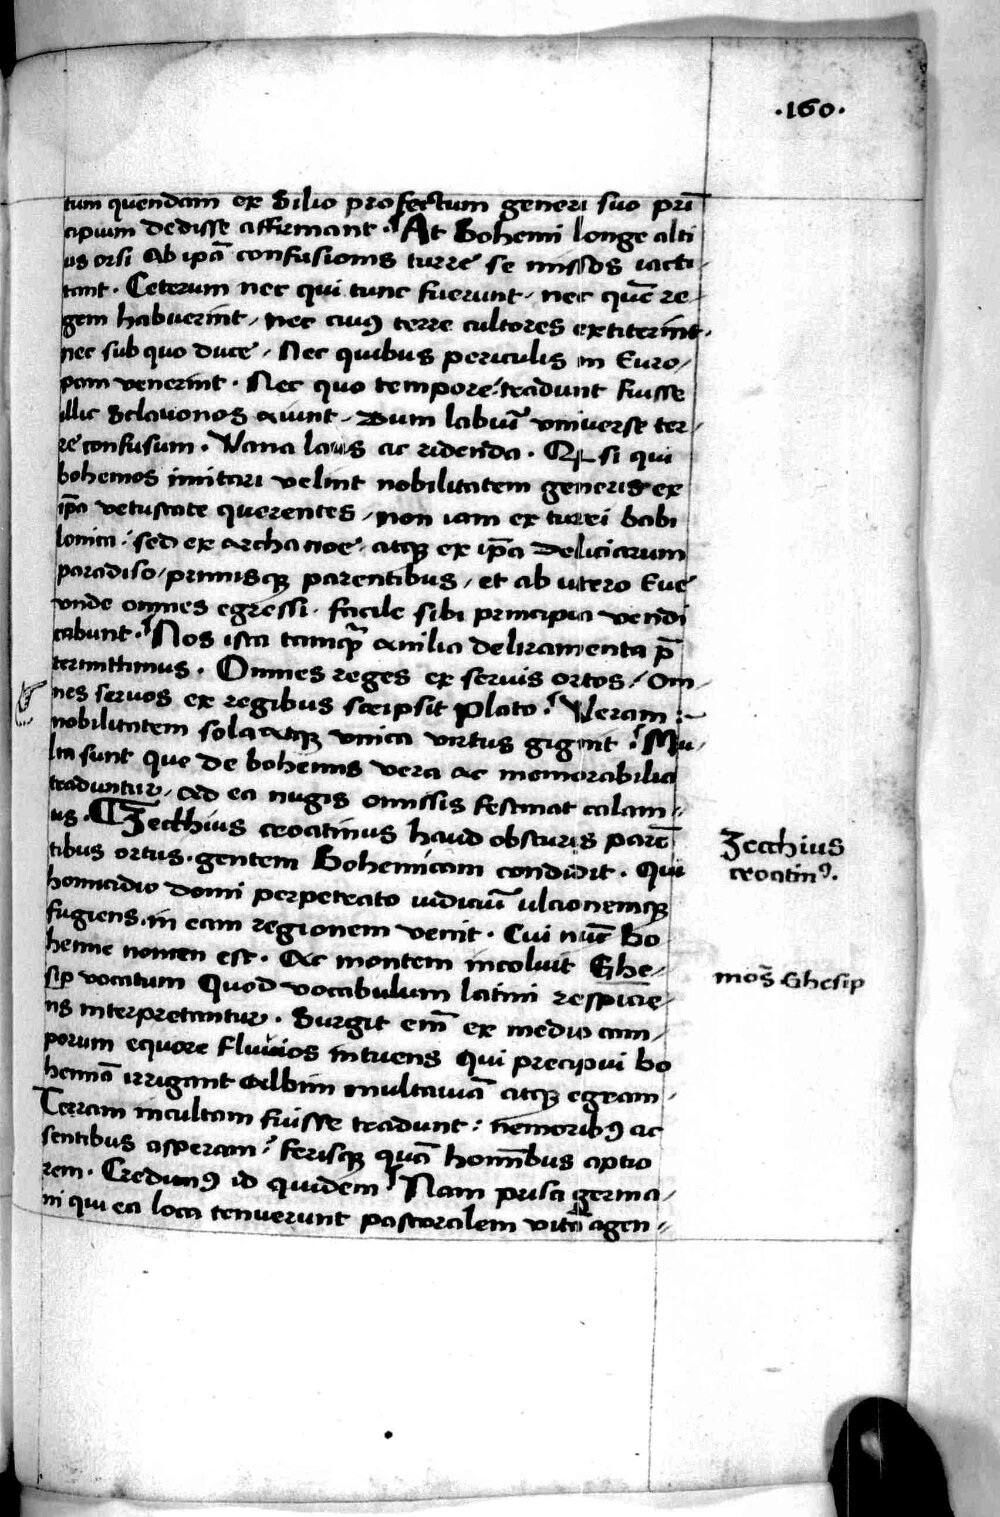 ·160·
tum quendam ex Silio profectum generi suo pri̅
cipium dedisse affirmant · At Bohemi longe alti
us orsi ab ip̅a confusionis turre se missos iacti-
tant · Ceterum nec qui tunc fuerunt / nec que̅ re-
gem habuerint / nec cuiꝰ terre cultores extiterint ·
nec sub quo duce / Nec quibus periculis in Euro/
pam venerint · Nec quo tempore: tradunt fuisse
illic Sclavonos aiunt / Dum labiu̅ universe ter/
re confusum · Vana laus ac ridenda · Q si qui
bohemos imitari velint nobilitatem generis ex
ip̅a vetustate querentes / non iam ex turri babi
lonica : sed ex archa noe · atqꝫ ex ip̅a deliciarum
paradiso / primisqꝫ parentibus / et ab utero Eue
vnde omnes egressi · facile sibi principia vendi
cabunt · Nos ista tamq̅ anilia deliramenta p̅
termittimus · Omnes reges ex seruis ortos / Om-
nes seruos ex regibus scripsit Plato · Veram :~
nobilitatem sola atqꝫ vnica virtus gignit · Mu/
lta sunt que de bohemis vera ac memorabilia
traduntur / Ad ea nugis omissis festinat calam⸗
us · Zecchius croatinus haud obscuris pare̅
tibus ortus · gentem Bohemicam condidit · Qui
homicidio domi perpetrato iudiciu̅ ulcionemqꝫ
fugiens · in eam regionem venit · Cui nu̅c bo
hemie nomen est · Ac montem incoluit Ghe/
sip vocatum Quod vocabulum latini respicie̅/
ns interpretantur · Surgit em̅ ex medio cam/
porum equore fluuios intuens Qui precipui bo
hemia̅ irrigant Albim multauia̅ atqꝫ egram ·
Terram incultam fuisse tradunt : nemoribꝰ ac
sentibus asperam : ferisqꝫ qua̅ homi̅bus aptio
rem · Credimꝰ id quidem · Nam prisci germa/
ni qui ea loca tenuerunt pastoralem vita̅ agen⸗
Zecchius
croatinꝰ.
mo̅s Ghesip